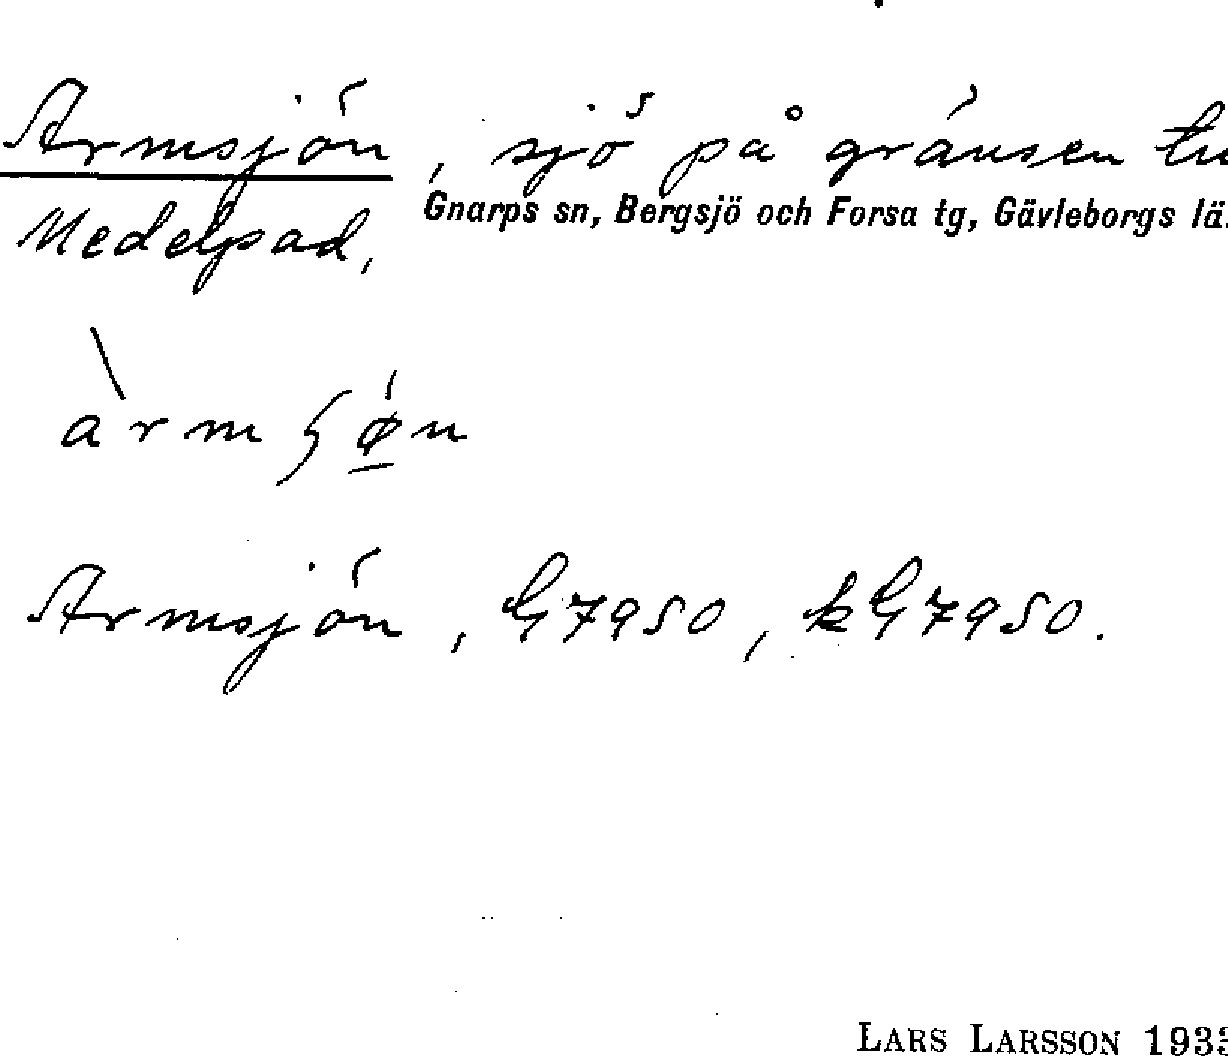 Armsjön, sjö på gränsen
Gnarps sn, Bergsjö och Forsa tg, Gävleborgs lä
Medelpad,
Armsjön, G7950, kG7950.
LARS LARSSON 193